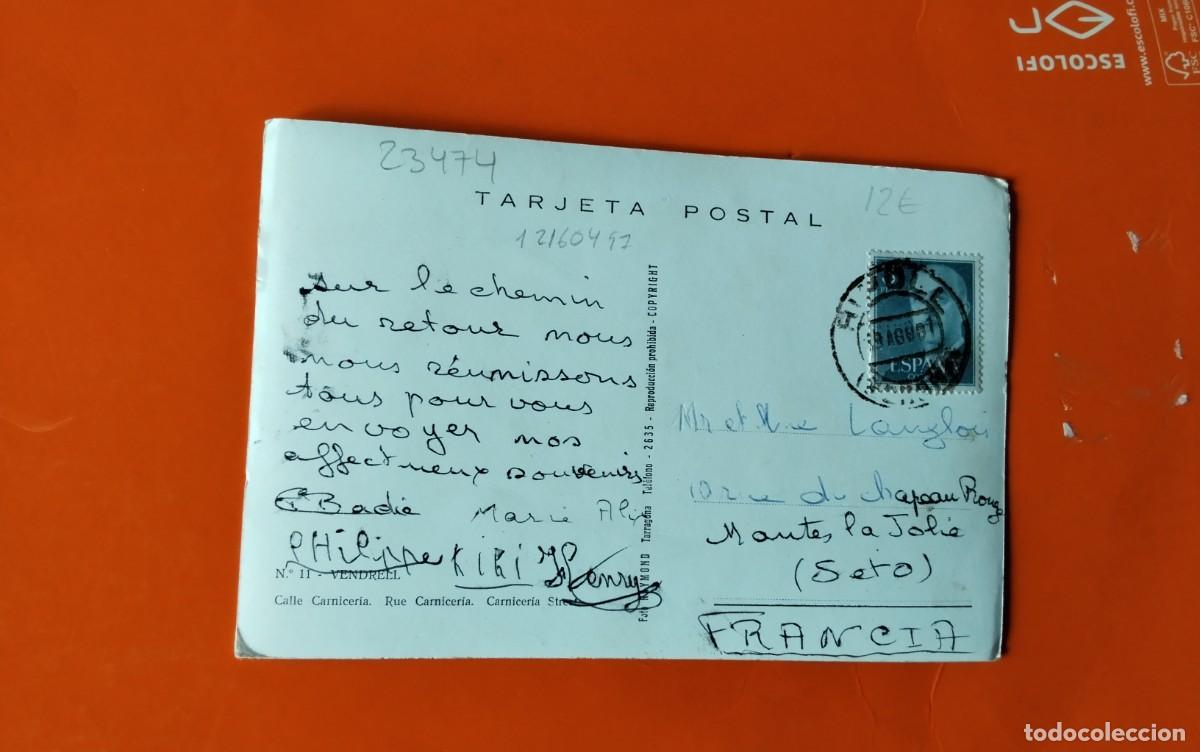 ESCOLOFI
www.escolofi.c
MIX
23474
TARJETA POSTAL
12€
12160492
sur le chemin
du retour nous
nous réunissons
tous pour vous
envoyer nos
affectueux souvenirs
Badie Marie Alix
PHilippe KIKI Henry
N.º 11 - VENDRELL
Calle Carnicería. Rue Carnicería. Carnicería Street
Foto RAYMOND Tarragona Teléfono - 2635 - Reproducción prohibida - COPYRIGHT
AGO
ESPAÑA
Mr et Mme Langlois
10 rue du chapeau Rouge
Mantes la Jolie
(Seto)
FRANCIA
todocoleccion